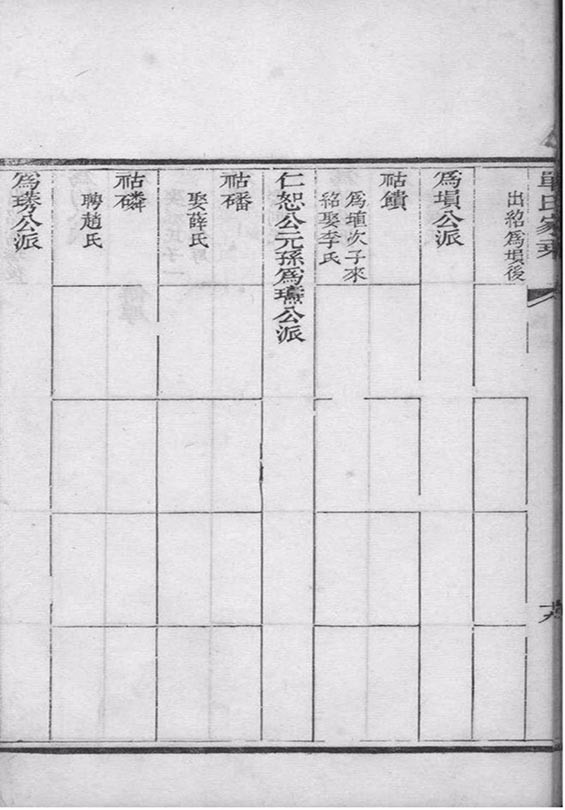 單氏家乘
出紹爲塤後
爲塤公派
祜饋
爲埴次子來
紹娶李氏
仁恕公元孫爲公派
祜磻
娶薛氏
祜磷
聘趙氏
爲璓公派